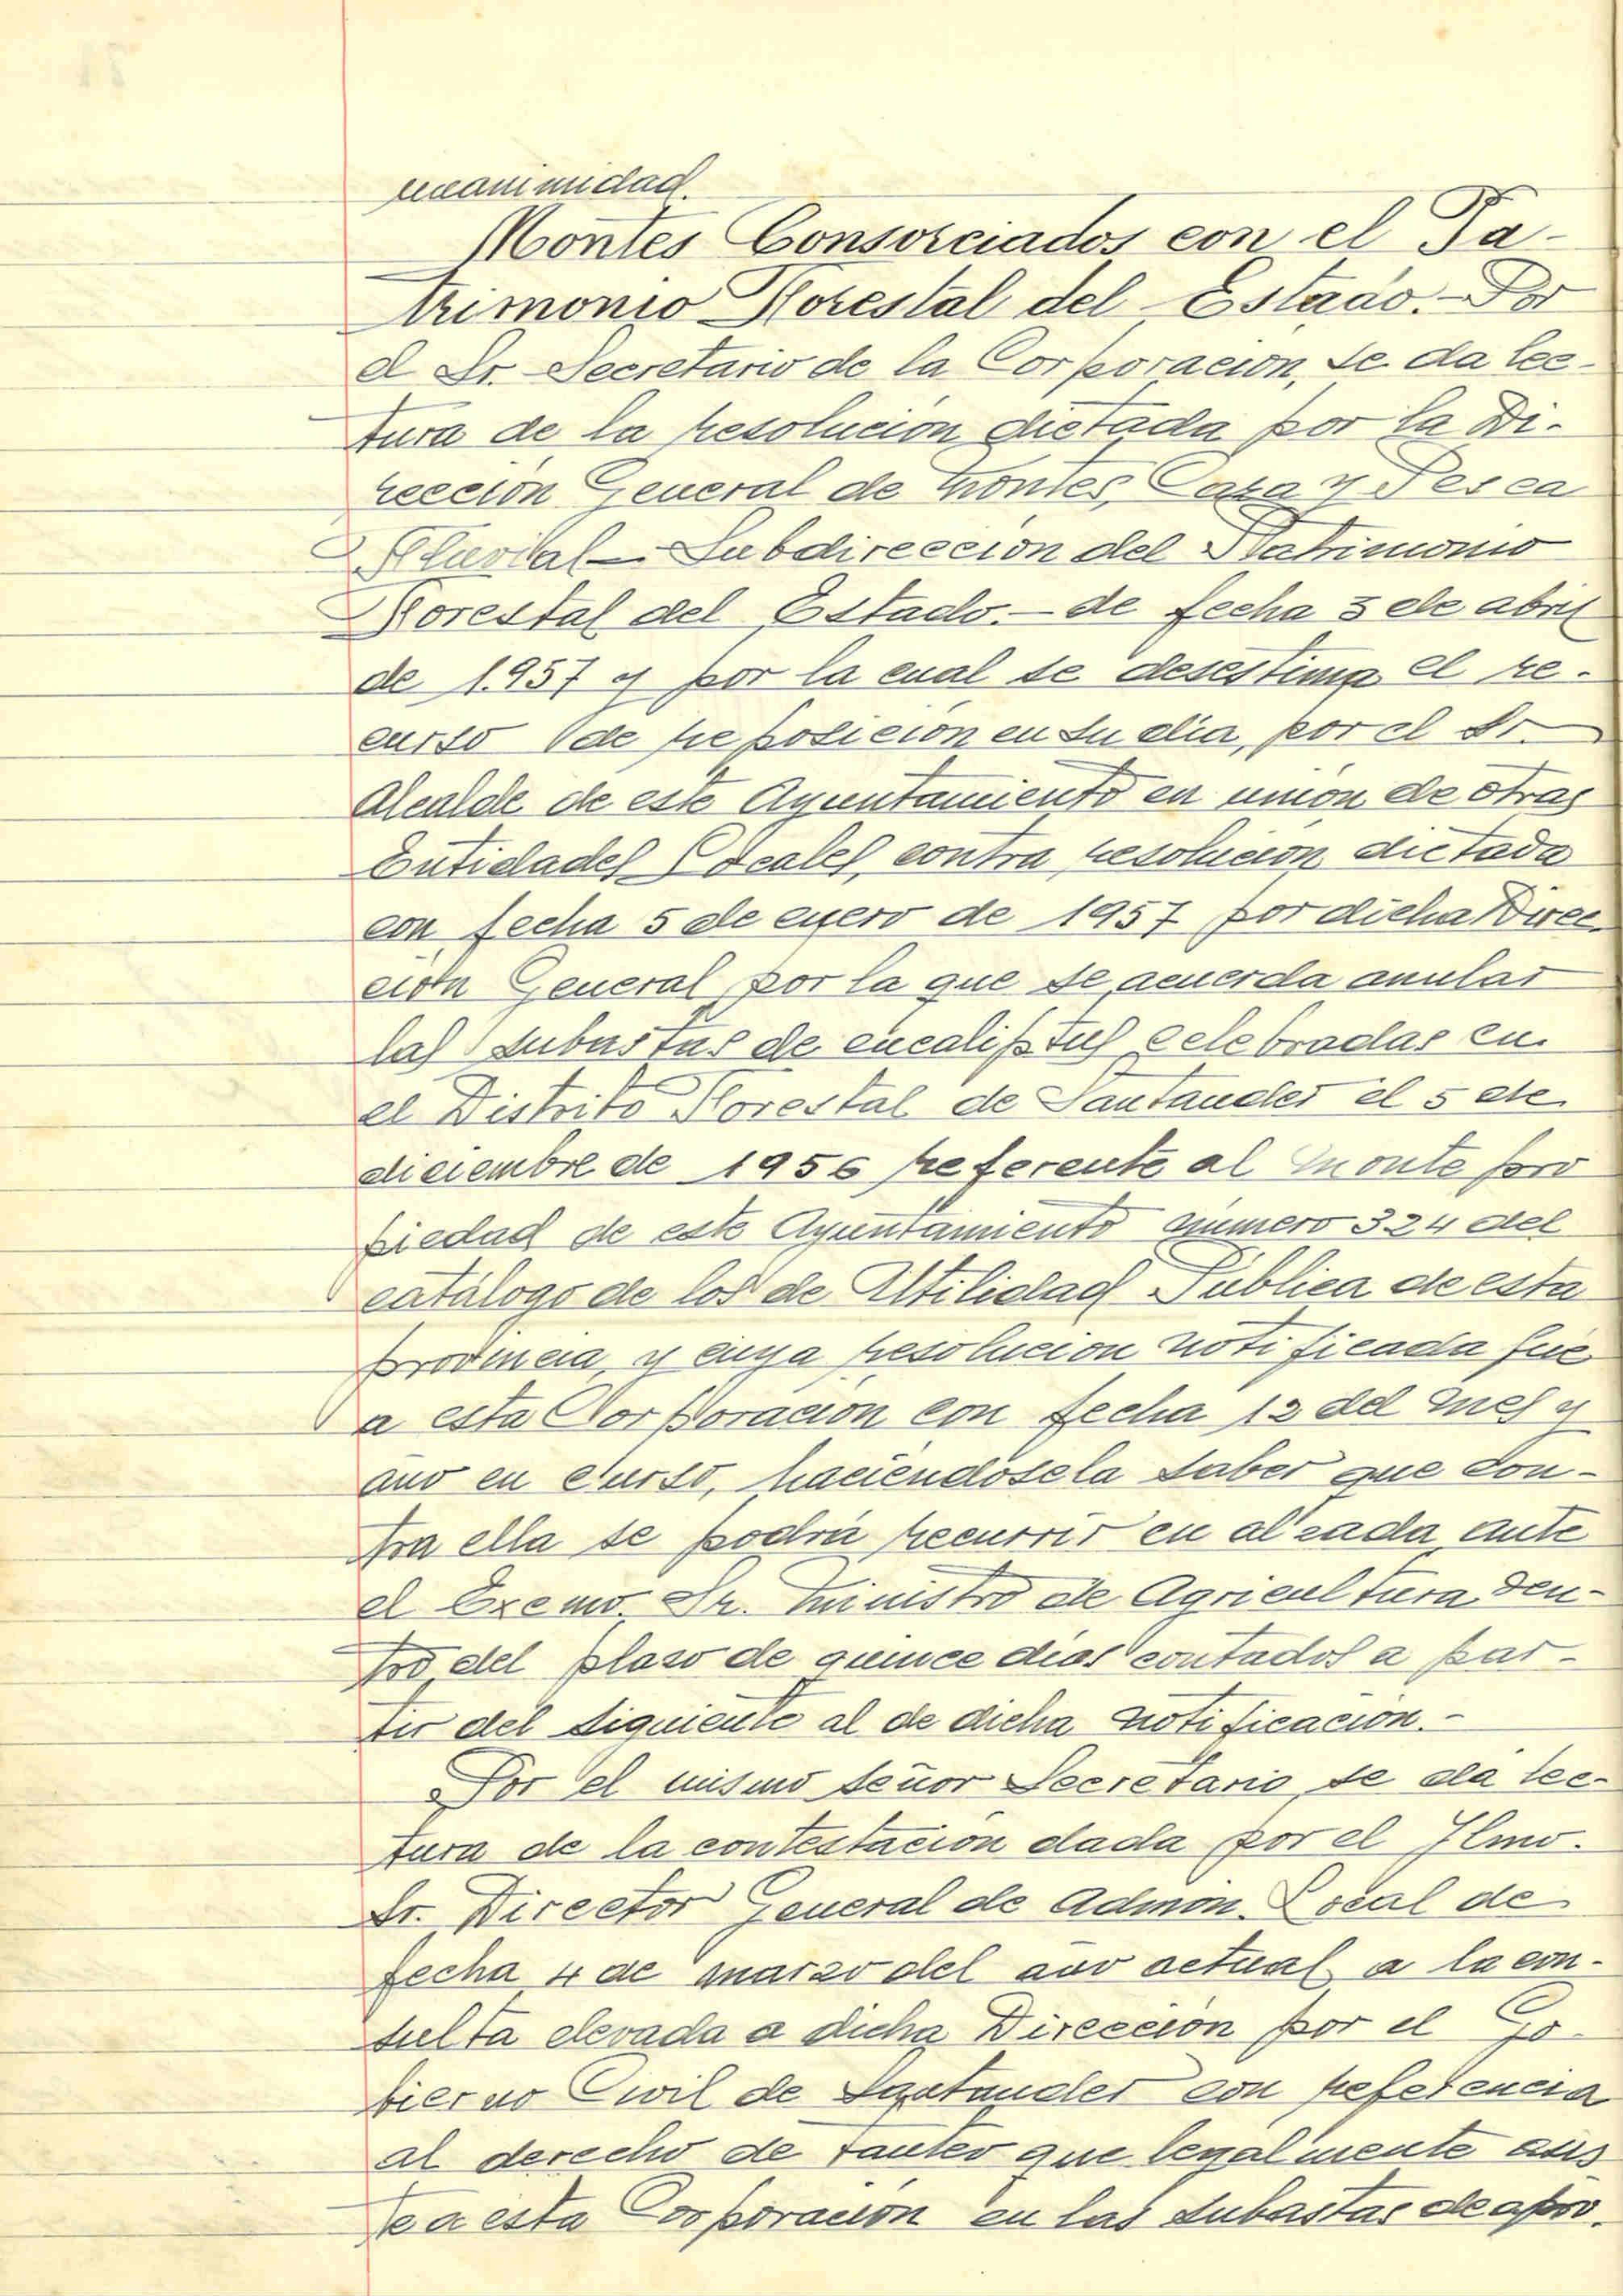 unanimidad.
Montes Consorciados con el Pa-
trimonio Forestal del Estado.- Por
el Sr. Secretario de la Corporación, se da lec-
tura de la resolución dictada por la Di-
rección General de Montes, Caza y Pesca
Fluvial - Subdirección del Patrimonio
Forestal del Estado.- de fecha 3 de abril
de 1.957 y por la cual se desestima el re-
curso de reposición en su dia, por el Sr.
Alcalde de este Ayuntamiento en unión de otras
Entidades Locales, contra resolución dictada
con fecha 5 de enero de 1957 por dicha Direc-
ción General por la que se acuerda anular
las subastas de eucaliptus celebradas en
el Distrito Forestal de Santander el 5 de
diciembre de 1956 referente al monte pro
piedad de este Ayuntamiento número 324 del
catálogo de los de Utilidad Pública de esta
provincia, y cuya resolución notificada fué
a esta Corporación con fecha 12 del mes y
año en curso, haciendosela saber que con-
tra ella se podrá recurrir en alzada ante
el Excmo. Sr. Ministro de Agricultura den-
tro del plazo de quince dias contados a par-
tir del siguiente al de dicha notificación.-
Por el mismo señor Secretario, se da lec-
tura de la contestación dada por el Ilmo.
Sr. Director General de Admón. Local de
fecha 4 de marzo del año actual a la con-
sulta elevada a dicha Dirección por el Go-
bierno Civil de Santander con referencia
al derecho de tanteo que legalmente asis
te a esta Corporación en las subastas de apro-